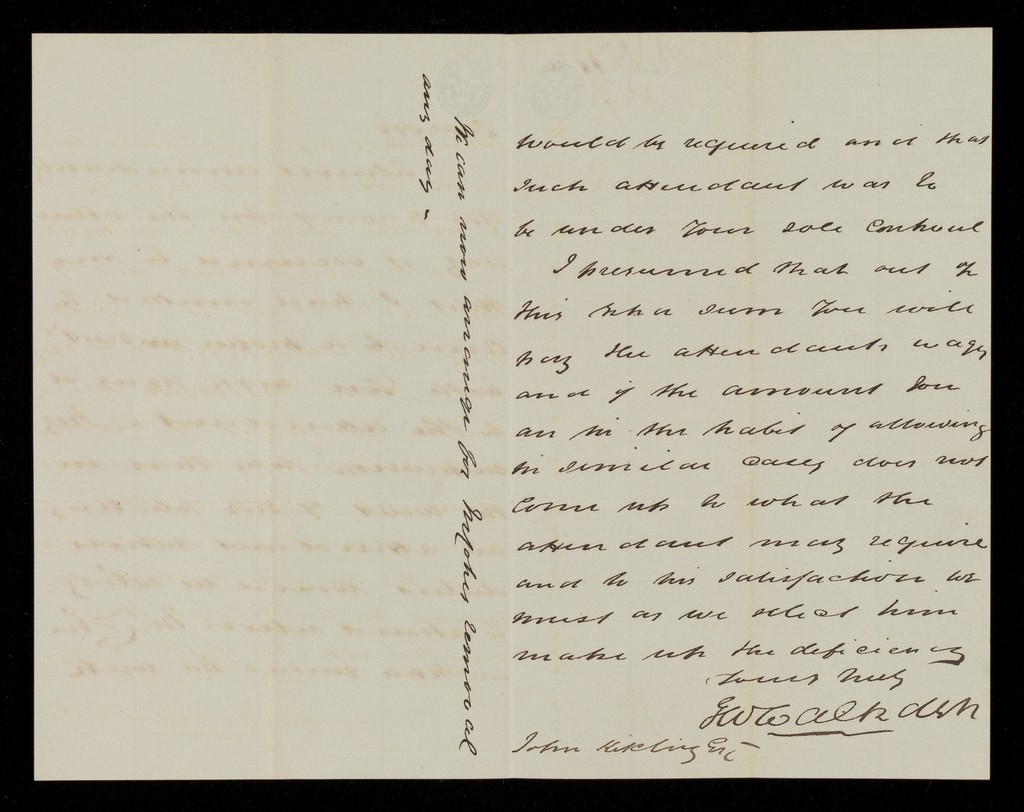 would be required and that
such attendant was to
be under your sole controul
I presumed that out of
this extra sum you will
pay the attendants wages
and if the amount you
are in the habit of allowing
in similar cases does not
come up to what the
attendant may require
and to his satisfaction we
must as we select him
make up the deficiency
Yours truly
John Kitching Esq
We can now arrange for removal
any day -